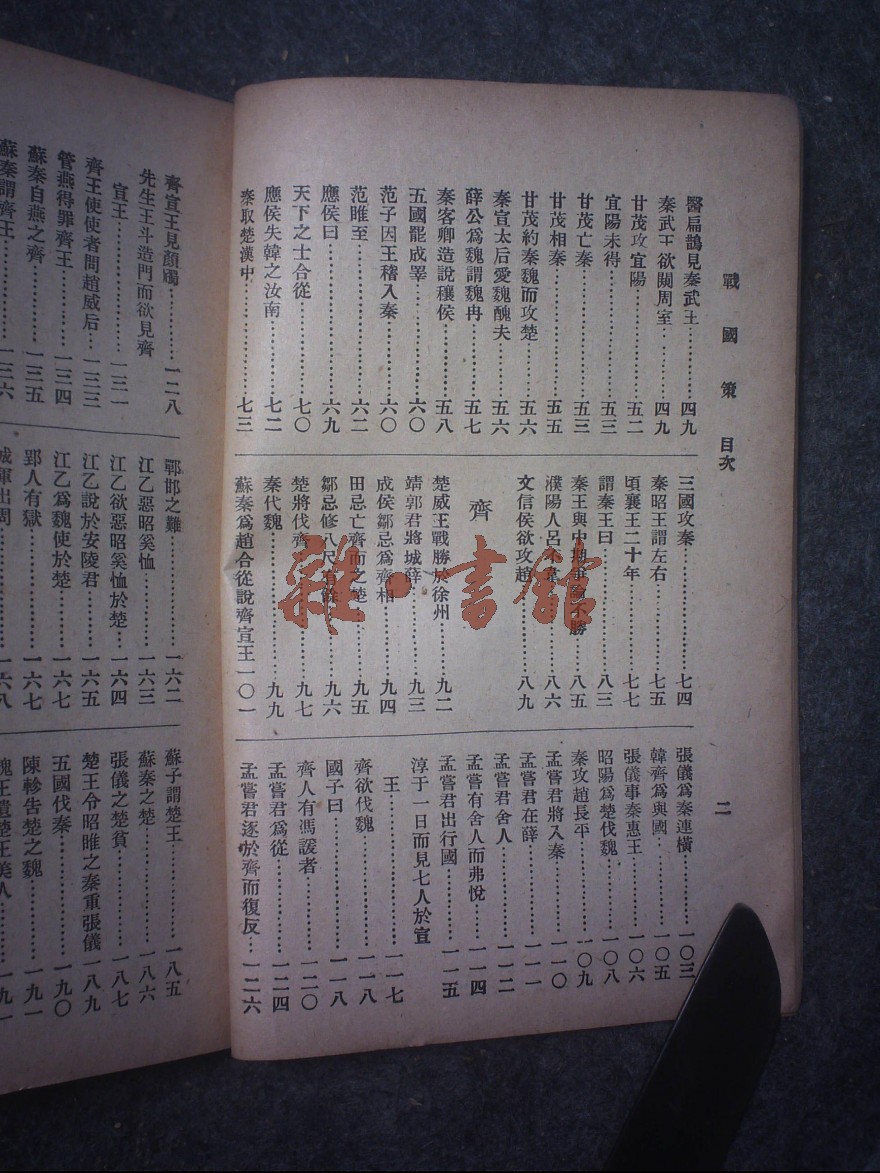 戰國策 目次
二
醫扁鵲見秦武王……四九
秦武王欲闚周室……四九
甘茂攻宜陽……五二
宜陽未得……五三
甘茂亡秦……五三
甘茂相秦……五五
甘茂約秦魏而攻楚……五六
秦宣太后愛魏醜夫……五六
薛公爲魏謂魏冉……五七
秦客卿造說穰侯……五八
五國罷成睪……六〇
范子因王稽入秦……六〇
范睢至……六二
應侯曰……六九
天下之士合從……七〇
應侯失韓之汝南……七二
秦取楚漢中……七三
三國攻秦……七四
秦昭王謂左右……七五
頃襄王二十年……七七
謂秦王曰……八三
秦王與中期爭論不勝……八五
濮陽人呂不韋……八六
文信侯欲攻趙……八九
齊
楚威王戰勝於徐州……九二
靖郭君將城薛……九三
成侯鄒忌爲齊相……九四
田忌亡齊而之楚……九五
鄒忌修八尺有餘……九六
楚將伐齊……九七
秦伐魏……九九
蘇秦爲趙合從說齊宣王一〇一
張儀爲秦連橫……一〇三
韓齊爲與國……一〇五
張儀事秦惠王……一〇六
昭陽爲楚伐魏……一〇八
秦攻趙長平……一〇九
孟嘗君將入秦……一一〇
孟嘗君在薛……一一一
孟嘗君舍人……一一二
孟嘗有舍人而弗悅……一一四
孟嘗君出行國……一一五
淳于一日而見七人於宣
王……一一七
齊欲伐魏……一一八
國子曰……一一八
齊人有馮諼者……一二〇
孟嘗君爲從……一二四
孟嘗君逐於齊而復反……一二六
齊宣王見顏斶……一二八
先生王斗造門而欲見齊
宣王……一三一
齊王使使者問趙威后……一三三
管燕得罪齊王……一三四
蘇秦自燕之齊……一三五
蘇秦謂齊王……一三六
邯鄲之難……一六二
江乙惡昭奚恤……一六三
江乙欲惡昭奚恤於楚……一六四
江乙說於安陵君……一六五
江乙爲魏使於楚……一六七
郢人有獄……一六七
城渾出周……一六八
蘇子謂楚王……一八五
蘇秦之楚……一八六
張儀之楚貧……一八七
楚王令昭睢之秦重張儀一八九
五國伐秦……一九〇
陳軫告楚之魏……一九一
魏王遺楚王美人……一九一
雜·書館